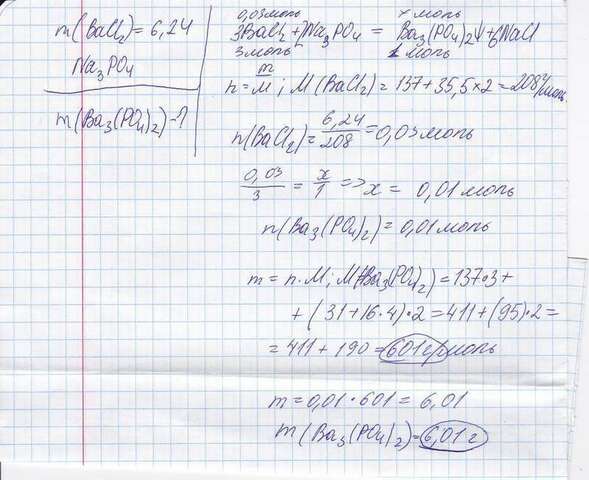 m(BaCl2)=6,24
Na3PO4
m(Ba3(PO4)2)-?
0,03 моль x моль
3BaCl2+2Na3PO4 = Ba3(PO4)2↓+6NaCl
3 моль 1 моль
n=m/M; M(BaCl2)=137+35,5×2=208г/моль
n(BaCl2)=6,24/208=0,03 моль
0,03/3 = x/1 => x = 0,01 моль
n(Ba3(PO4)2)=0,01 моль
m = n·M; M(Ba3(PO4)2)=137·3+
+(31+16·4)·2=411+(95)·2=
=411+190=601г/моль
m=0,01·601=6,01
m(Ba3(PO4)2)=6,01г